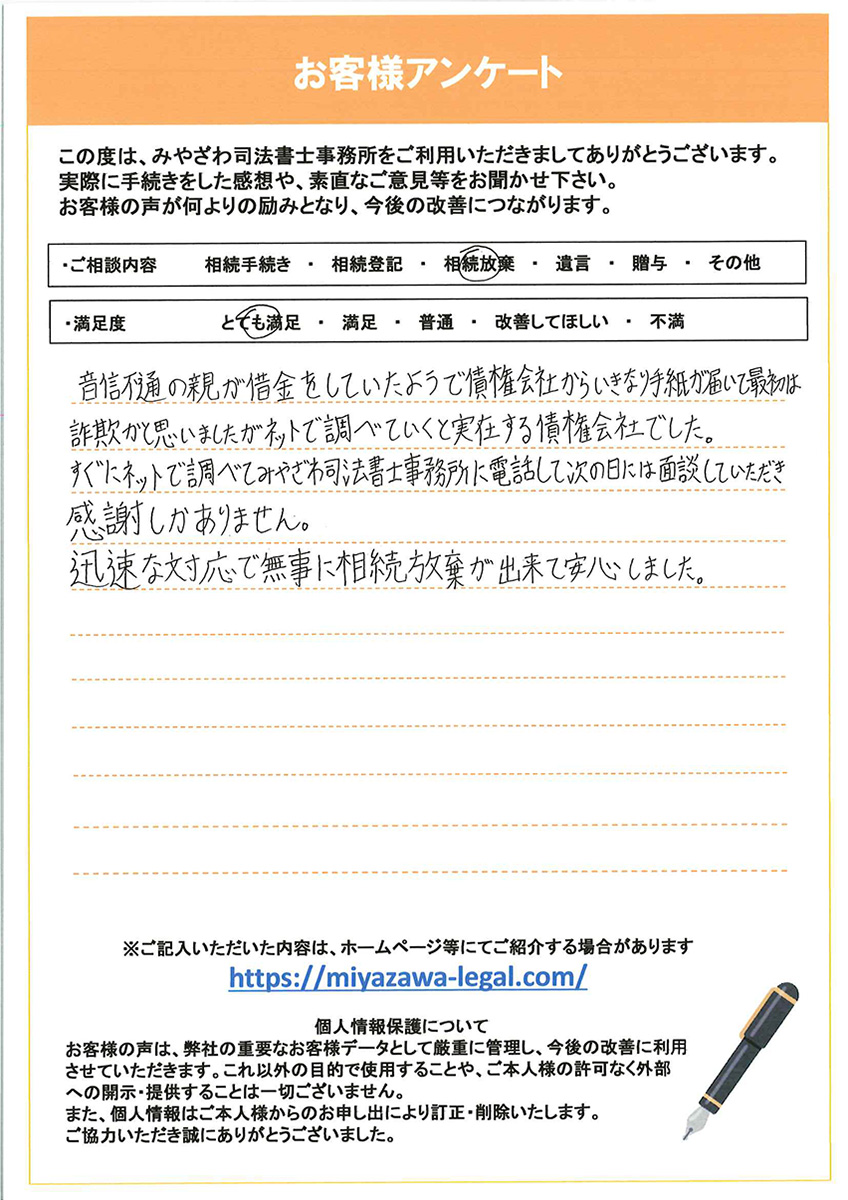 お客様アンケート
この度は、みやざわ司法書士事務所をご利用いただきましてありがとうございます。
実際に手続きをした感想や、素直なご意見等をお聞かせ下さい。
お客様の声が何よりの励みとなり、今後の改善につながります。
・ご相談内容　相続手続き ・ 相続登記 ・ 相続放棄 ・ 遺言 ・ 贈与 ・ その他
・満足度　とても満足 ・ 満足 ・ 普通 ・ 改善してほしい ・ 不満
音信不通の親が借金をしていたようで債権会社からいきなり手紙が届いて最初は
詐欺かと思いましたがネットで調べていくと実在する債権会社でした。
すぐにネットで調べてみやざわ司法書士事務所に電話して次の日には面談していただき
感謝しかありません。
迅速な対応で無事に相続放棄が出来て安心しました。
※ご記入いただいた内容は、ホームページ等にてご紹介する場合があります
https://miyazawa-legal.com/
個人情報保護について
お客様の声は、弊社の重要なお客様データとして厳重に管理し、今後の改善に利用
させていただきます。これ以外の目的で使用することや、ご本人様の許可なく外部
への開示・提供することは一切ございません。
また、個人情報はご本人様からのお申し出により訂正・削除いたします。
ご協力いただき誠にありがとうございました。